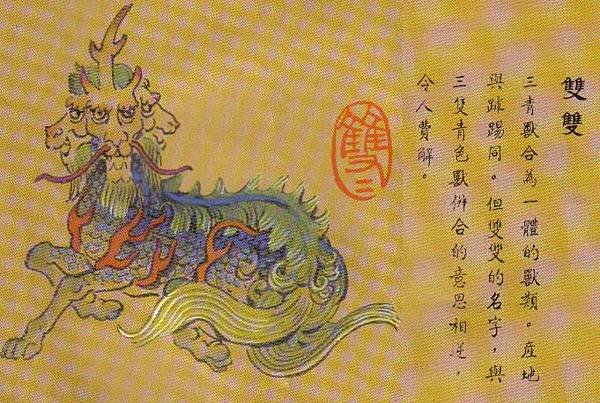 雙雙
三青獸合為一體的獸類。產地
與跊踢同。但雙雙的名字，與
三隻青色獸併合的意思相逆，
令人費解。
雙三